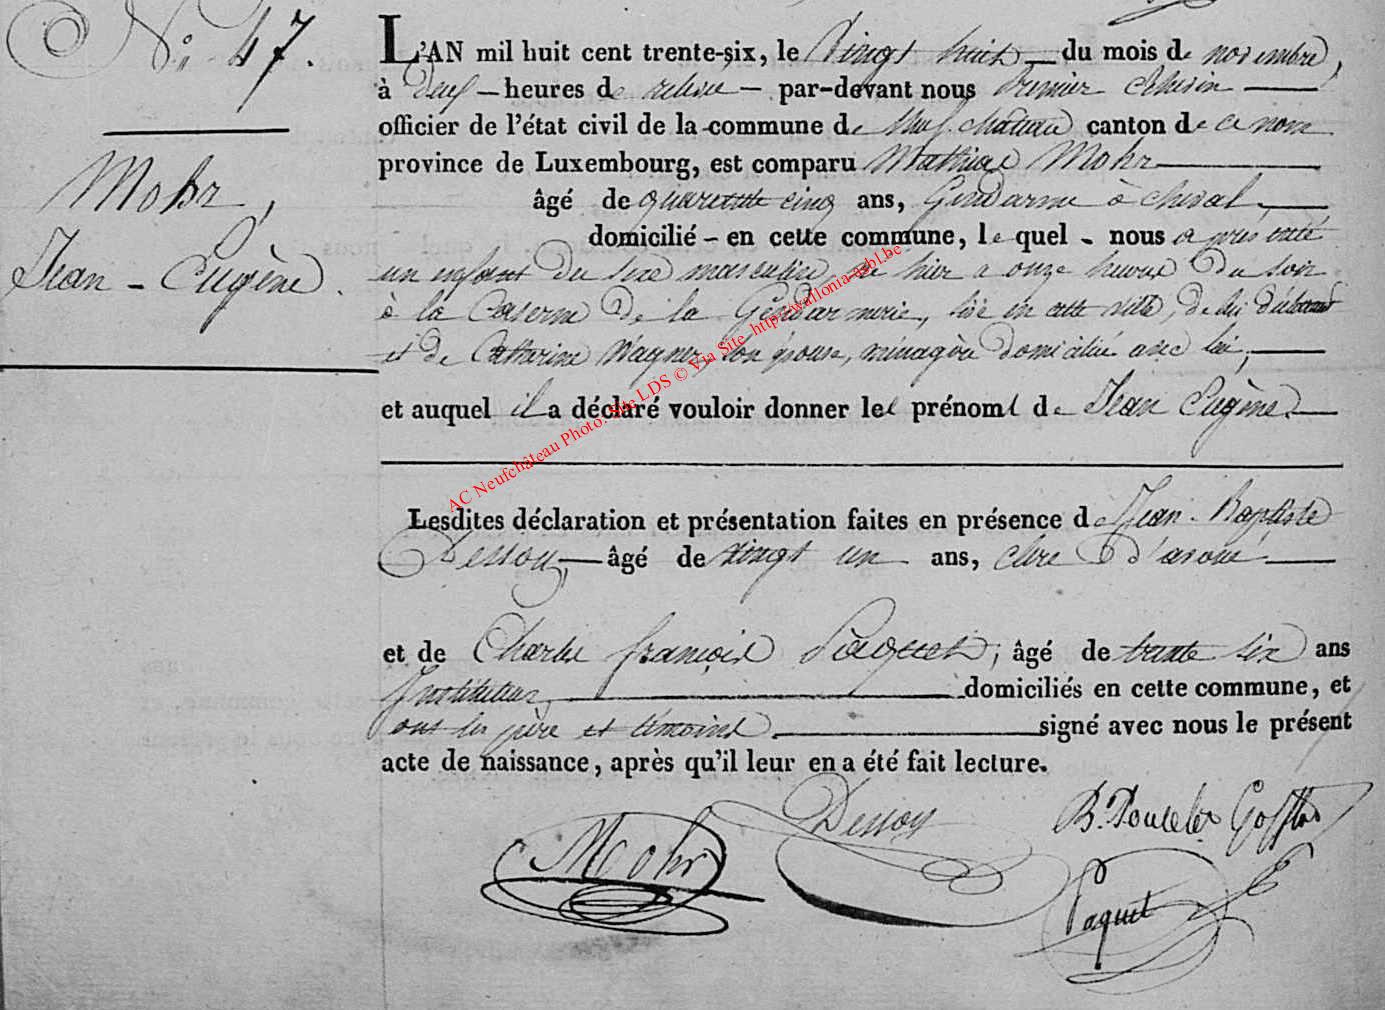 N° 47.
Mohr,
Jean-Eugène.
L'AN mil huit cent trente-six, le Vingt huit du mois de novembre,
à deux heures de relevée par-devant nous Premier Echevin
officier de l'état civil de la commune de Neufchateau canton de ce nom
province de Luxembourg, est comparu Mathias Mohr
âgé de quarante cinq ans, Gendarme à cheval,
domicilié - en cette commune, le quel - nous a présenté
un enfant du sexe masculin, né hier a onze heures du soir
à la Caserne de la Gendarmerie, sise en cette ville, de lui déclarant
et de Catharine Wagner, son épouse, ménagère domiciliée avec lui,
et auquel il a déclaré vouloir donner les prénoms de Jean Eugène.
Lesdites déclaration et présentation faites en présence de Jean-Baptiste
Dessoy, âgé de vingt un ans, clerc d'avoué
et de Charles françois Paquet, âgé de trente six ans
Instituteur, domiciliés en cette commune, et
ont les père et témoins signé avec nous le présent
acte de naissance, après qu'il leur en a été fait lecture.
Mohr Dessoy B. Goffin
Paquet
AC Neufchâteau Photo: Site LDS © Via Site http://wallonia-asbl.be